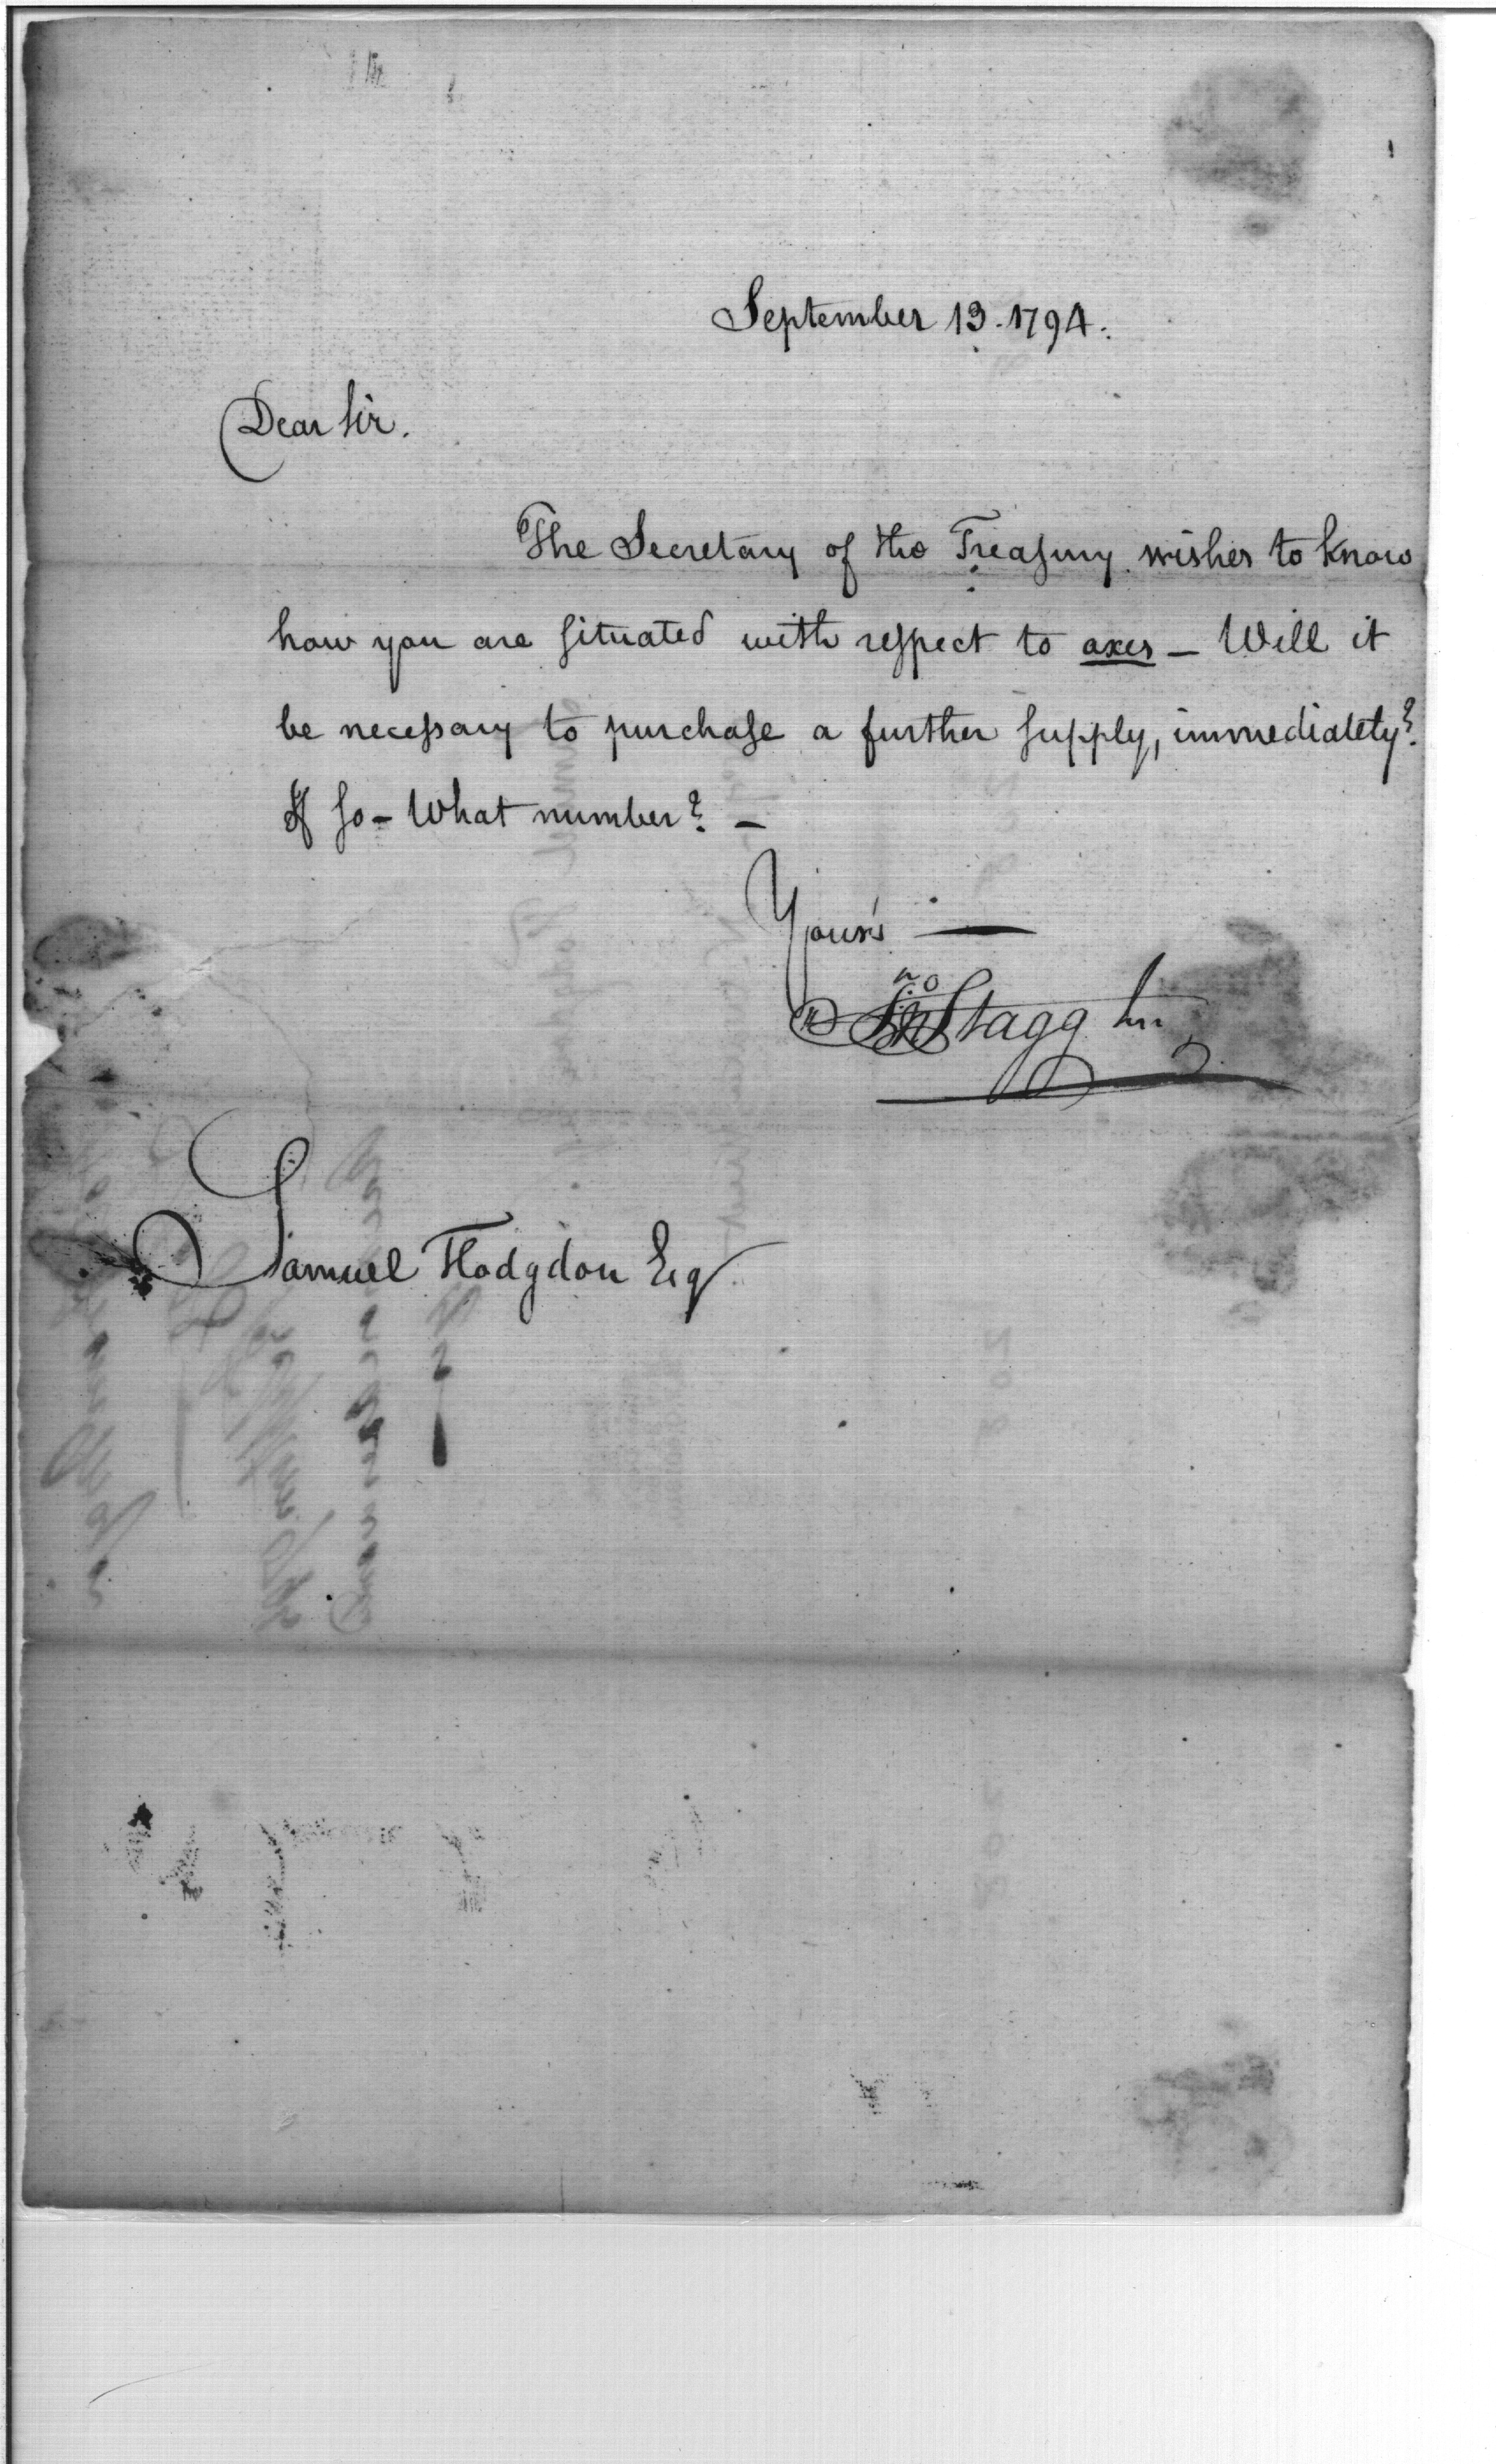 September 13. 1794.
Dear Sir.
The Secretary of the Treasury wishes to know
how you are situated with respect to axes — Will it
be necessary to purchase a further supply, immediately?
If so — What number? —
Your's —
Jno Stagg Jun
Samuel Hodgdon Esq